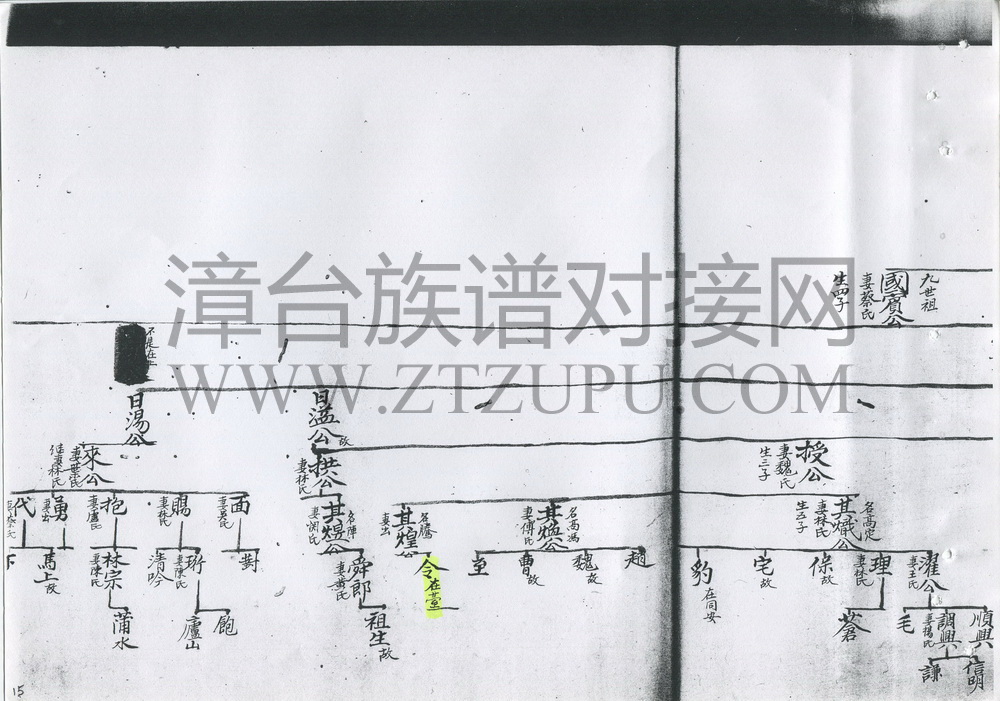 漳台族谱对接网
WWW.ZTZUPU.COM
九世祖
國賓公
妻蔡氏
生四子
日溢公
故
日湯公
授公
妻魏氏
生三子
拱公
妻林氏
來公
妻葉氏
継妻徐氏
名高定
其熾公
妻林氏
生五子
名高馮
妻傅氏
名騰
其煌公
妻出
名陣
其煜公
面
妻吳氏
賜
妻林氏
抱
妻盧氏
勇
妻出
代
濯公
妻王氏
理
妻杜氏
保故
宅故
豹
在同安
趙
魏故
曹故
至
令
在臺
舜郎
妻黃氏
對
珩
妻陳氏
清吟
林宗
妻陳氏
馬上故
順興
調興
妻楊氏
毛
蒼
祖生故
飽
廬山
蒲水
信明
謙
15